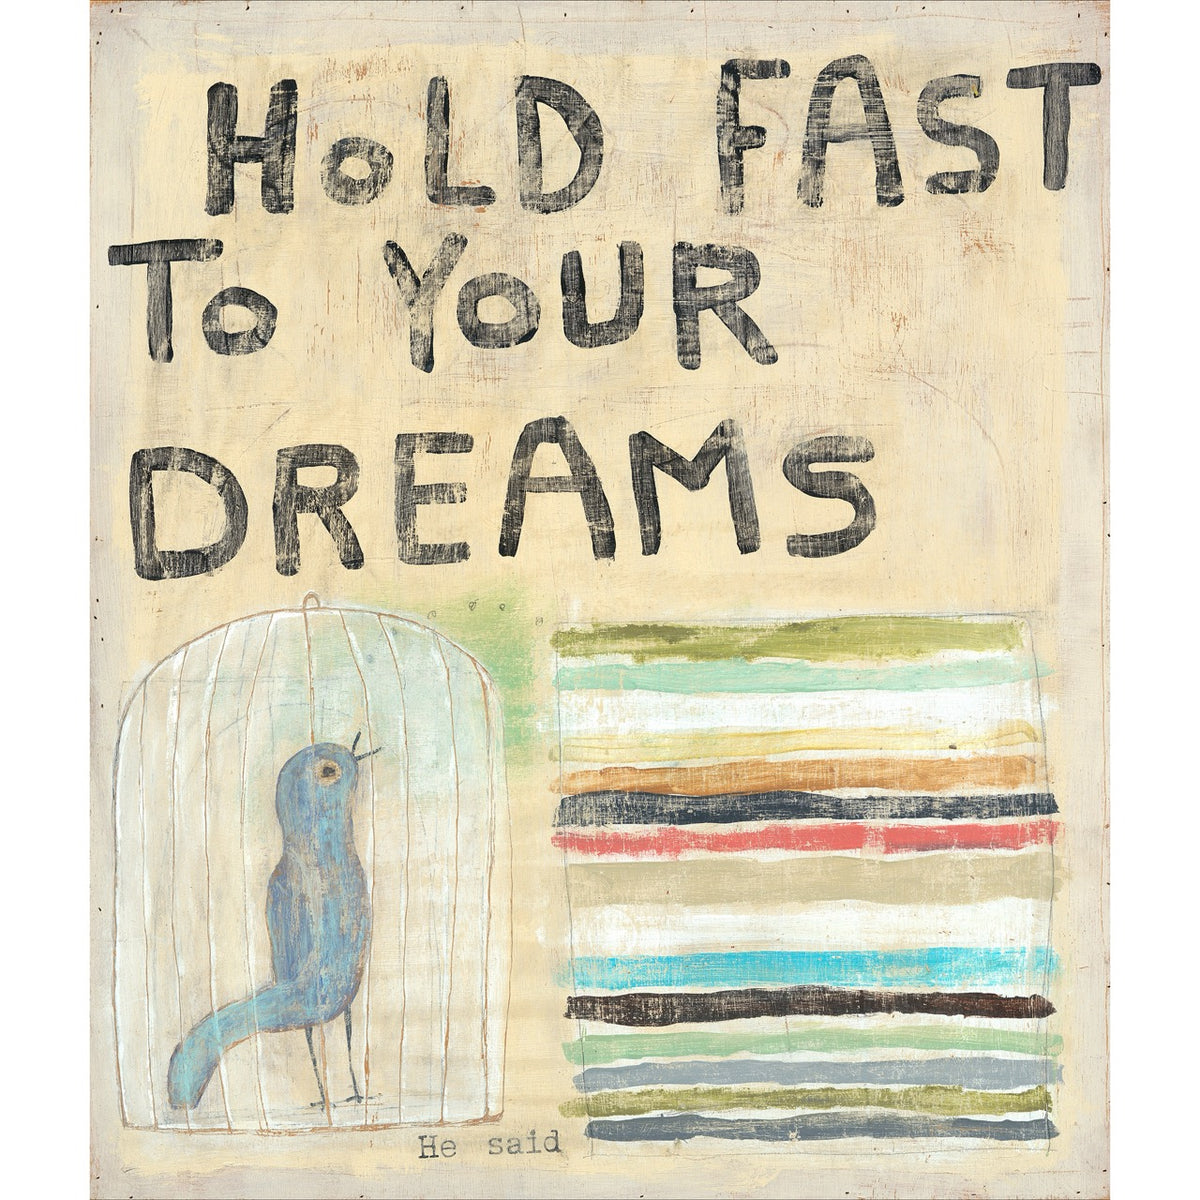 HoLD FAST
To YoUR
DREAMS
He said